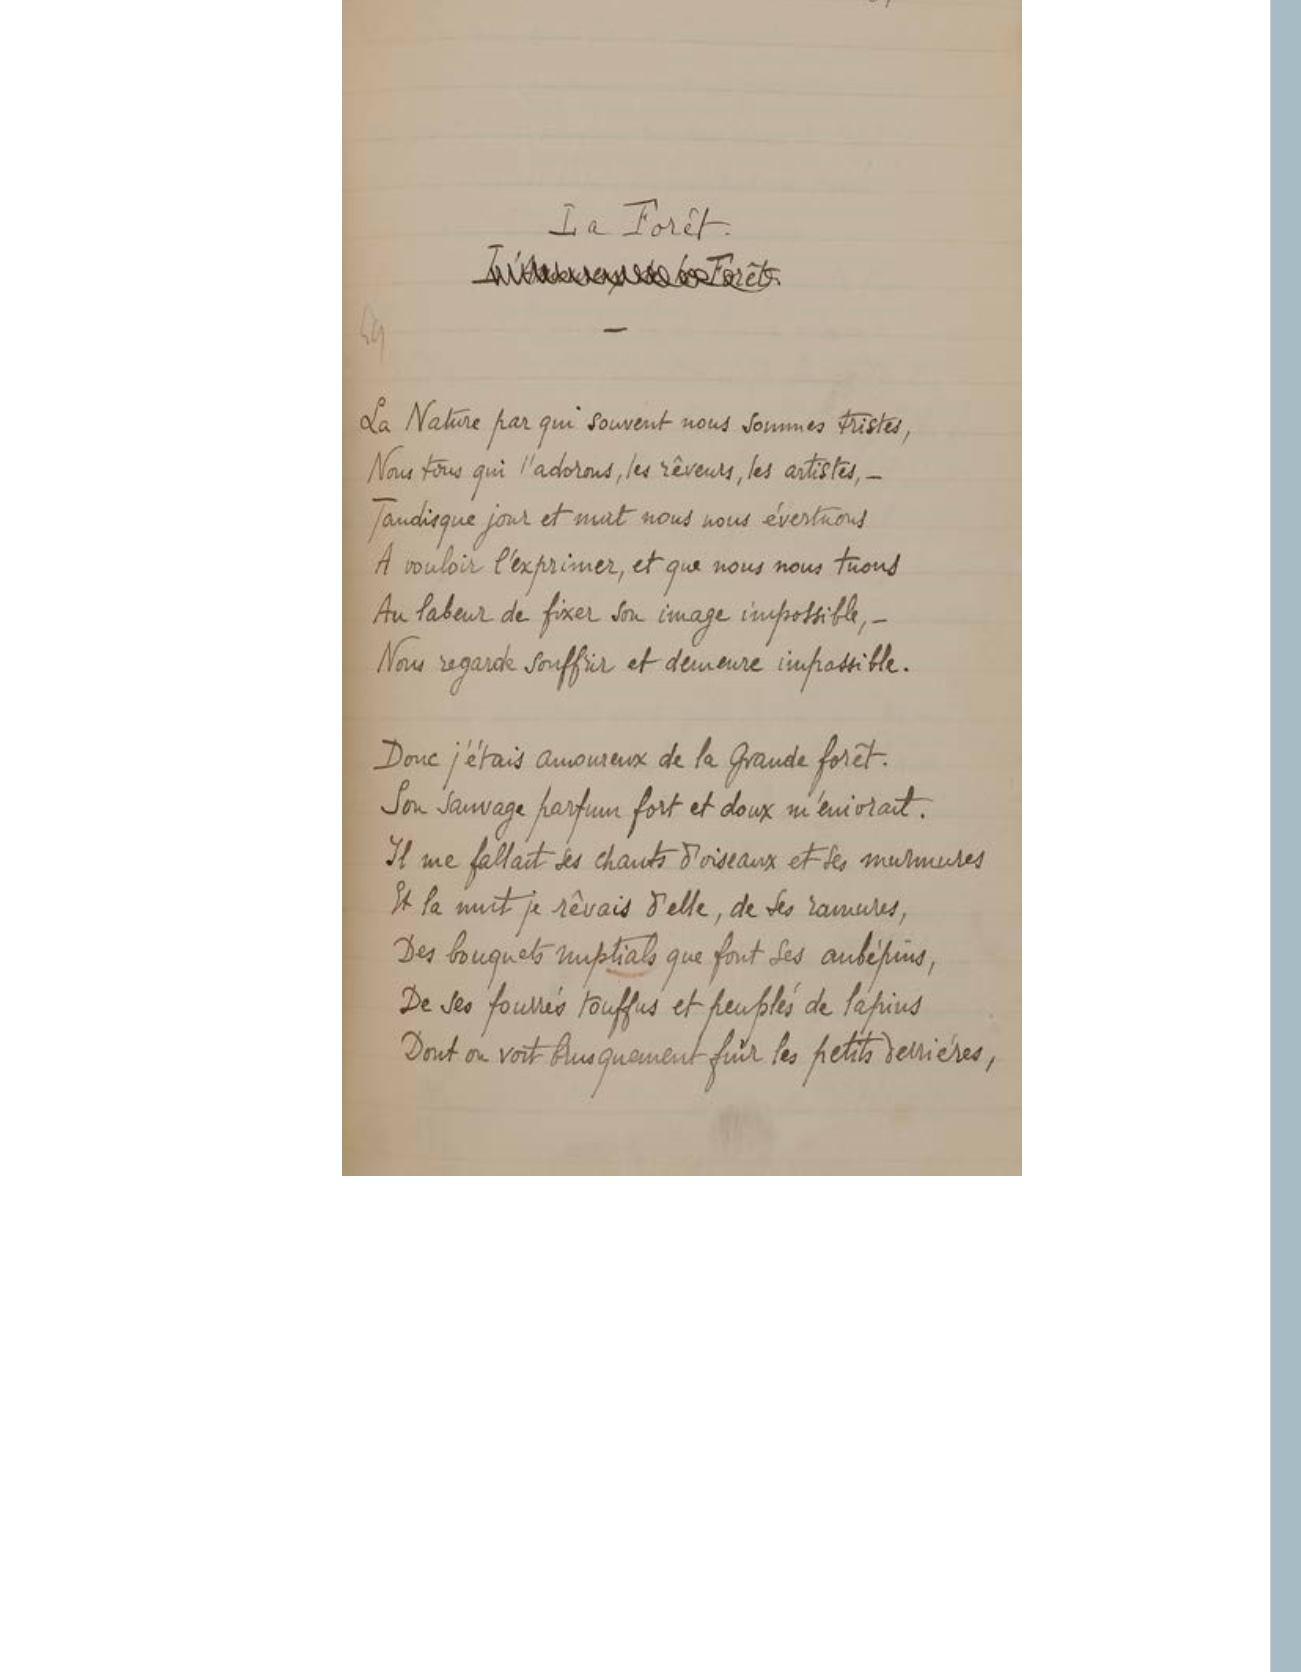 La Forêt.
Forêt.
—
La Nature par qui souvent nous sommes tristes,
Nous tous qui l'adorons, les rêveurs, les artistes, —
Tandisque jour et nuit nous nous évertuons
A vouloir l'exprimer, et que nous nous tuons
Au labeur de fixer son image impossible, —
Nous regarde souffrir et demeure impassible.
Donc j'étais amoureux de la grande forêt.
Son sauvage parfum fort et doux m'enivrait.
Il me fallait ses chants d'oiseaux et ses murmures
Et la nuit je rêvais d'elle, de ses ramures,
Des bouquets nuptials que font ses aubépins,
De ses fourrés touffus et peuplés de lapins
Dont on voit brusquement fuir les petits derrières,